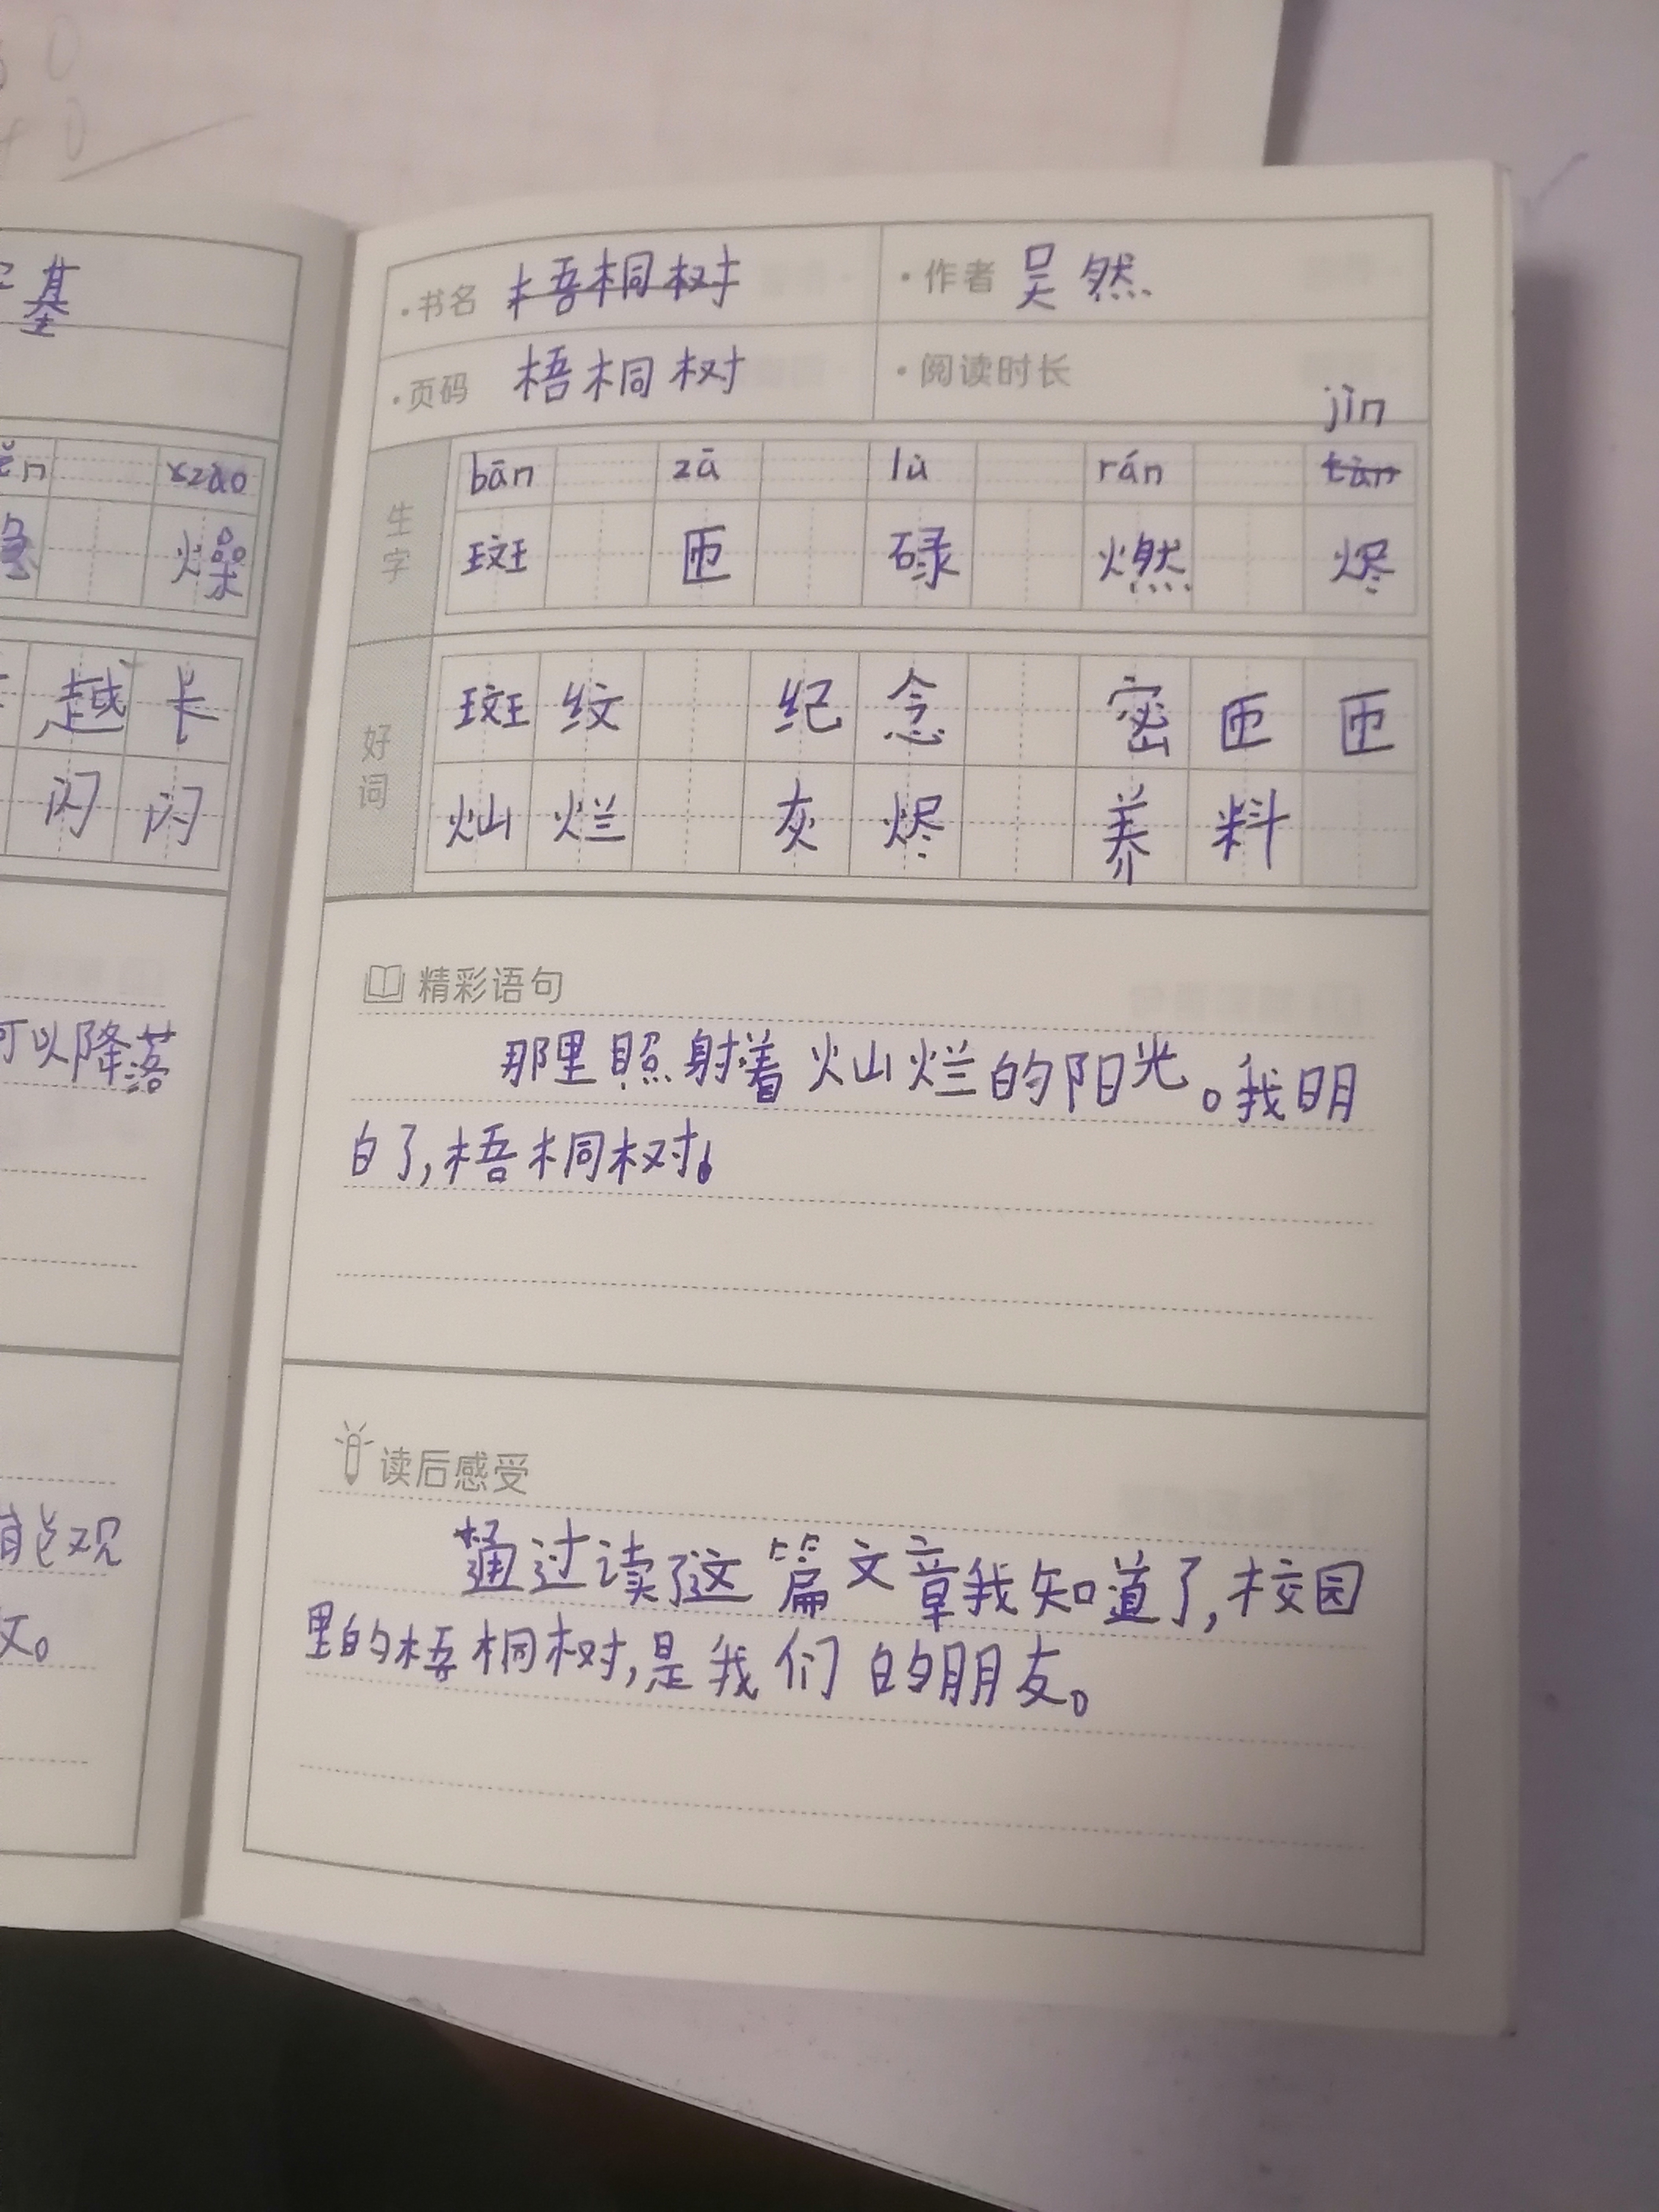 基
·书名 梧桐树 ·作者 吴然
·页码 梧桐树 ·阅读时长
jìn
bān zā lù rán
生字 斑 匝 碌 燃 烬
好词 斑纹 纪念 密匝匝
灿烂 灰烬 养料
精彩语句
那里照射着灿烂的阳光。我明
白了,梧桐树。
读后感受
通过读了这篇文章我知道了,校园
里的梧桐树,是我们的朋友。
燥
越卡
闪闪
可以降落
能观